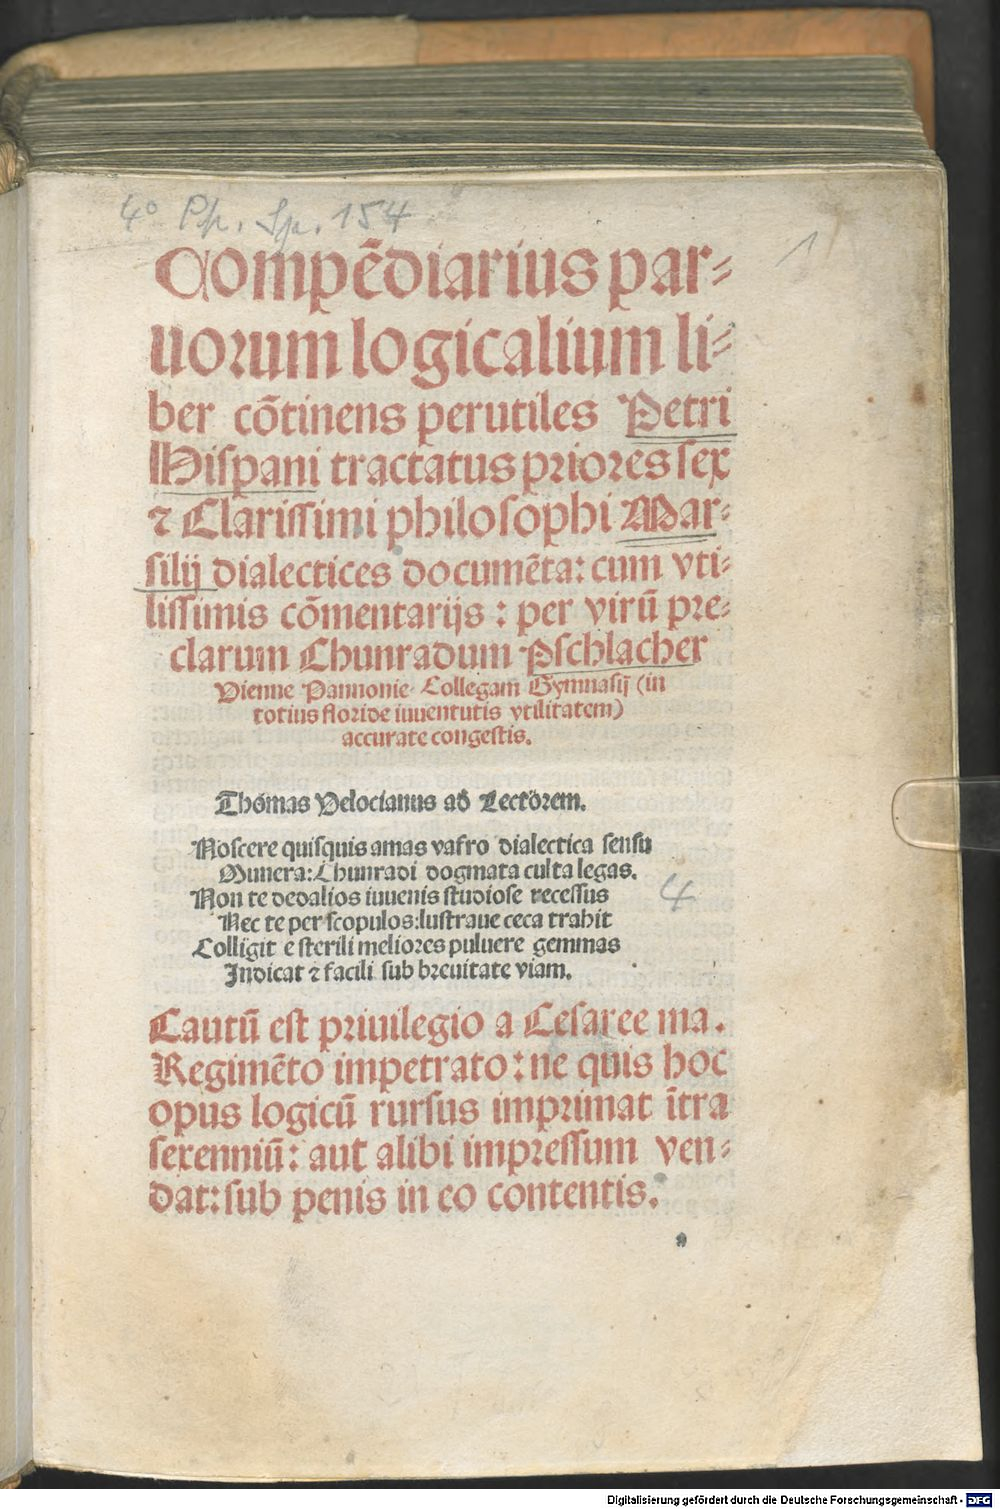 4° Ph. Sp. 154
1
Compēdiarius par⸗
uorum logicalium li⸗
ber cōtinens perutiles Petri
Hiſpani tractatus priores ſex
⁊ Clariſſimi philoſophi Mar⸗
silij dialectices documēta: cum vti⸗
liſſimis cōmentarijs : per virū pre⸗
clarum Chunradum Pſchlacher
Vienne Pannonie Collegam Gymnasij (in
totius floride iuuentutis vtilitatem)
accurate congeſtis.
Thomas Velocianus ad Lectorem.
Noſcere quiſquis amas vafro dialectica ſenſu
Munera: Chunradi dogmata culta legas.
Non te dedalios iuuenis ſtudioſe receſſus
Nec te per ſcopulos: luſtraue ceca trahit
Colligit e ſterili meliores puluere gemmas
Indicat ⁊ facili ſub breuitate viam.
4
Cautū eſt priuilegio a Ceſaree ma.
Regimēto impetrato: ne quis hoc
opus logicū rurſus imprimat ītra
ſexenniū: aut alibi impreſſum ven⸗
dat: ſub penis in eo contentis.
Digitalisierung gefördert durch die Deutsche Forschungsgemeinschaft - DFG